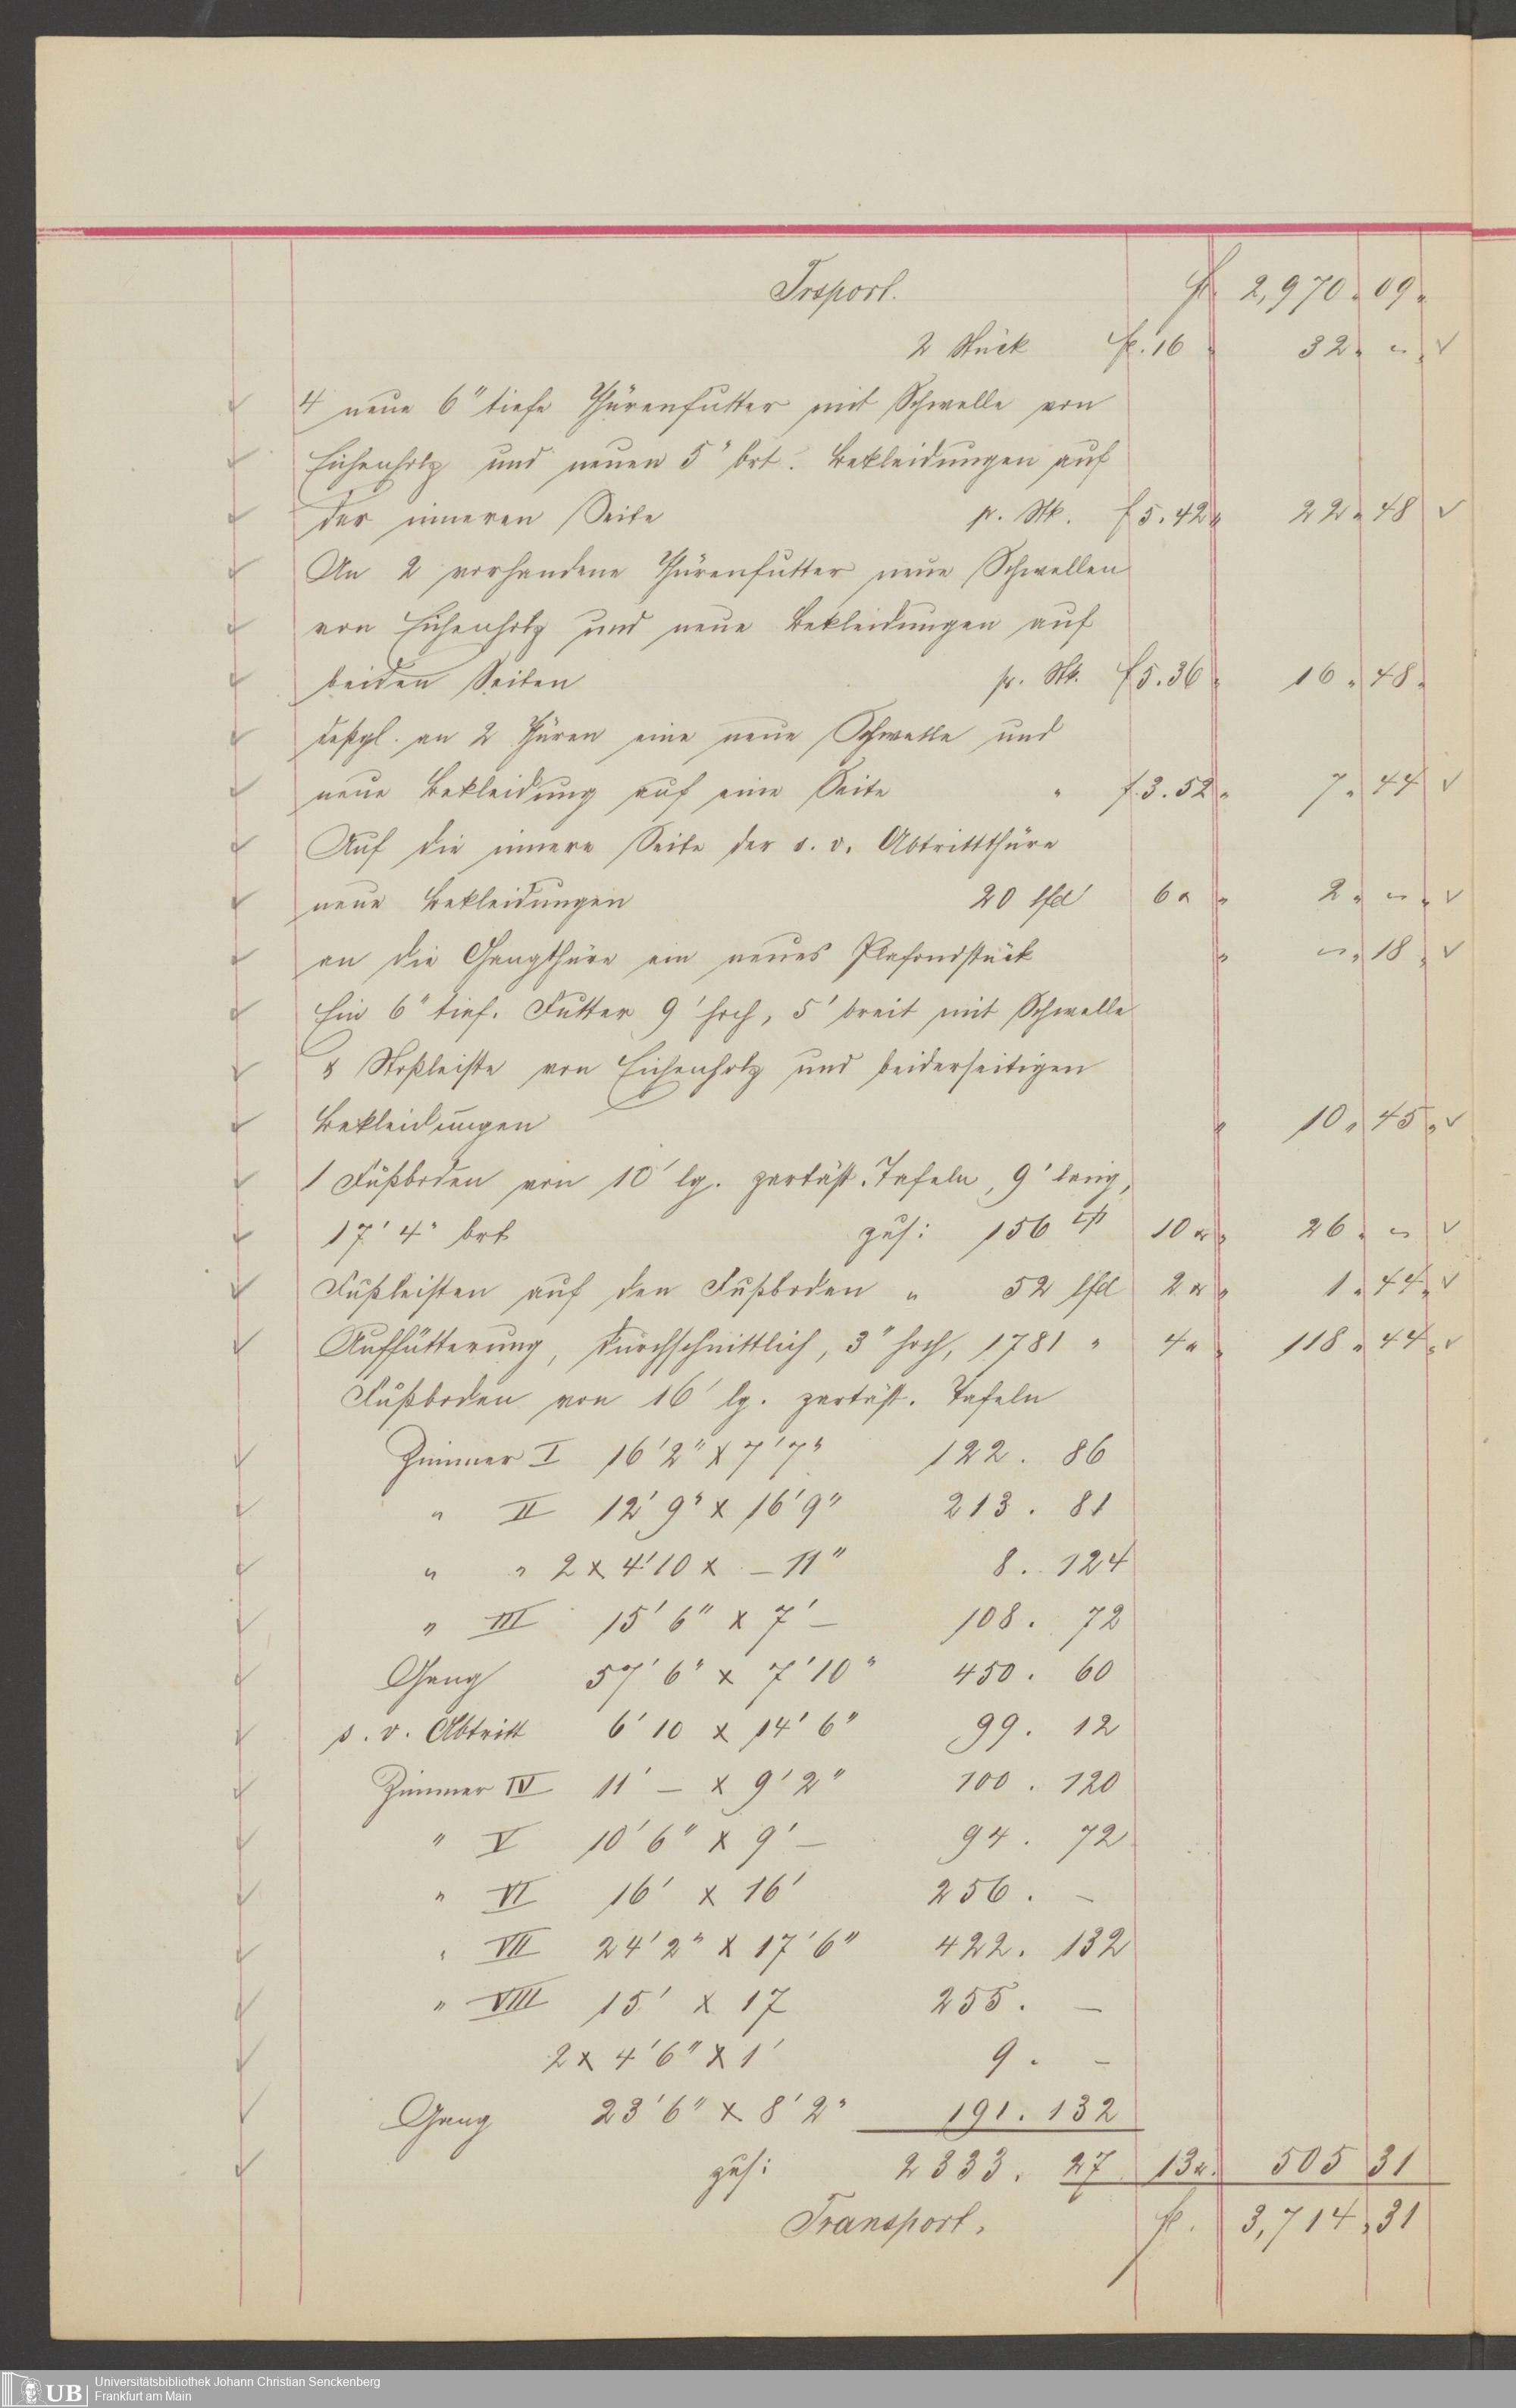 Trsport. fl. 2,970. 09.
2 Stück fl. 16 " 32. – " ✓
4 neue 6" tiefe Thürenfutter mit Schwelle von
Eichenholz und neuen 5" brt. Bekleidungen auf
der inneren Seite p. Stk. f 5.42 " 22 " 48 ✓
An 2 vorhandene Thürenfutter neue Schwellen
von Eichenholz und neue Bekleidungen auf
beiden Seiten pr. Stk. f 5.36 " 16 " 48.
deßgl. an 2 Thüren eine neue Schwelle und
neue Bekleidung auf eine Seite " f. 3.52 " 7 " 44 ✓
Auf die innere Seite der s. v. Abtrittthüre
neue Bekleidungen 20 lfd 6 x " 2 " – " ✓
an die Gangthüre ein neues Plafondstück " – " 18 " ✓
Ein 6" tief. Futter 9' hoch, 5' breit mit Schwelle
& Stoßleiste von Eichenholz und beiderseitigen
Bekleidungen " 10 " 45 " ✓
1 Fußboden von 10' lg. zertäft. Tafeln, 9' lang,
17' 4" brt zus: 156 10 x " 26 " – ✓
Fußleisten auf den Fußboden " 52 lfd 2 x " 1 " 44 " ✓
Auffütterung, durchschnittlich, 3" hoch, 1781 " 4 " " 118 " 44 " ✓
Fußboden von 16' lg. zertäft. Tafeln
Zimmer I 16' 2" x 7' 7" 122. 86
" II 12' 9" x 16' 9" 213. 81
" " 2 x 4' 10 x – 11" 8. 124
" III 15' 6" x 7' – 108. 72
Gang 57' 6" x 7' 10" 450. 60
s. v. Abtritt 6' 10 x 14' 6" 99. 12
Zimmer IV 11' – x 9' 2" 100. 120
" V 10' 6" x 9' – 94. 72
" VI 16' x 16' 256. –
" VII 24' 2" x 17' 6" 422. 132
" VIII 15' x 17 255. –
2 x 4' 6" x 1' 9. –
Gang 23' 6" x 8' 2" 191. 132
zus: 2333. 27 13 x. 505 31
Transport. fl. 3,714 " 31
UB Universitätsbibliothek Johann Christian Senckenberg
Frankfurt am Main